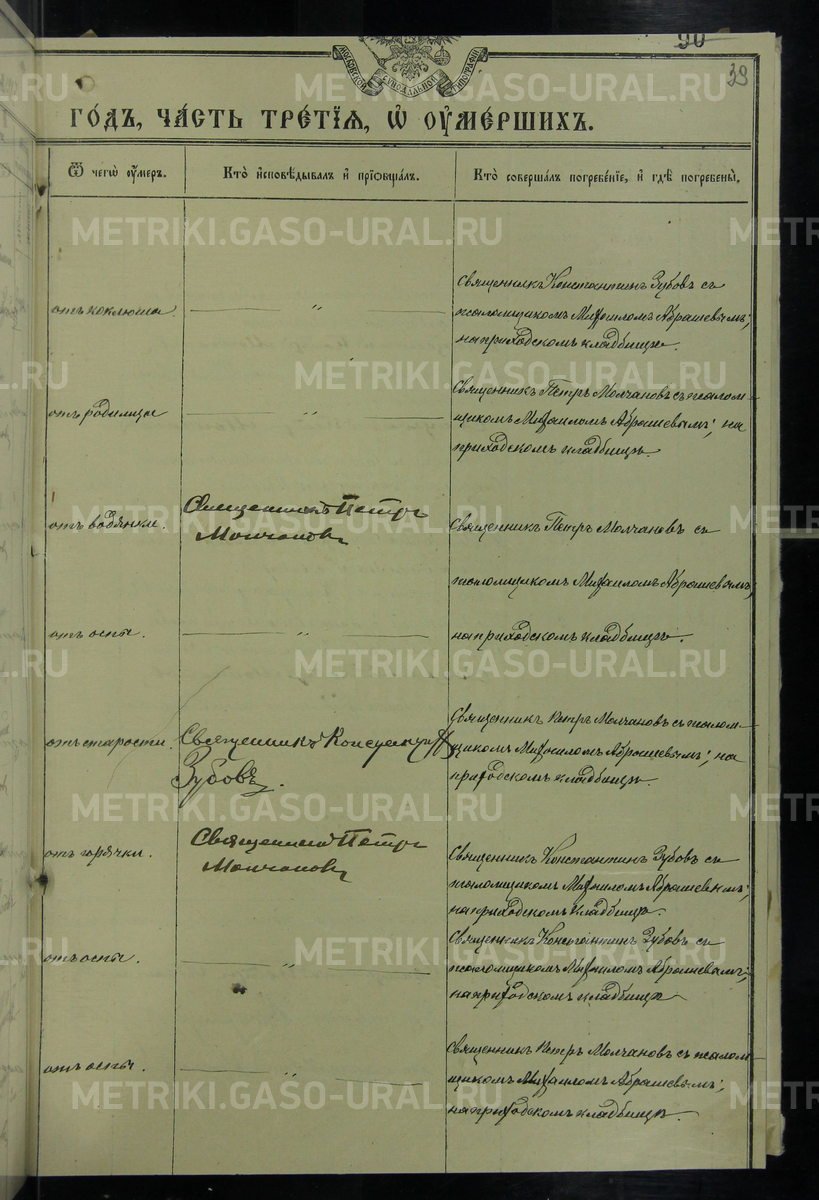 МОСКОВСКОЙ СѴНОДАЛЬНОЙ ТИПОГРАФІИ
90
39
METRIKI.GASO-URAL.RU
ГО́ДЪ, ЧА́СТЬ ТРЕ́ТІѦ, Ѡ҆ ОУ҆МЕ́РШИХЪ.
Ѿ чегѡ̀ оу҆́меръ.
Кто̀ и҆сповѣ́дывалъ и҆ прїѻбща́лъ.
Кто̀ соверша́лъ погребе́нїе, и҆ гдѣ̀ погребены̀.
METRIKI.GASO-URAL.RU
отъ коклюша.
— " —
Священникъ Константинъ Зубовъ съ
псаломщикомъ Михаиломъ Абрашевымъ;
на приходскомъ кладбищѣ.
METRIKI.GASO-URAL.RU
отъ родимца
— " —
Священникъ Петръ Молчановъ съ псалом-
щикомъ Михаиломъ Абрашевымъ; на
приходскомъ кладбищѣ.
METRIKI.GASO-URAL.RU
отъ водянки.
Священникъ Петръ
Молчановъ
Священникъ Петръ Молчановъ съ
псаломщикомъ Михаиломъ Абрашевымъ;
отъ оспы.
— " —
на приходскомъ кладбищѣ.
METRIKI.GASO-URAL.RU
отъ старости.
Священникъ Константинъ
Зубовъ.
Священникъ Петръ Молчановъ съ псалом-
щикомъ Михаиломъ Абрашевымъ; на
приходскомъ кладбищѣ.
METRIKI.GASO-URAL.RU
отъ горячки.
Священникъ Петръ
Молчановъ
Священникъ Константинъ Зубовъ съ
псаломщикомъ Михаиломъ Абрашевымъ;
на приходскомъ кладбищѣ.
METRIKI.GASO-URAL.RU
отъ оспы.
— " —
Священникъ Константинъ Зубовъ съ
псаломщикомъ Михаиломъ Абрашевымъ;
на приходскомъ кладбищѣ
отъ оспы.
— " —
Священникъ Петръ Молчановъ съ псалом-
щикомъ Михаиломъ Абрашевымъ;
на приходскомъ кладбищѣ.
METRIKI.GASO-URAL.RU